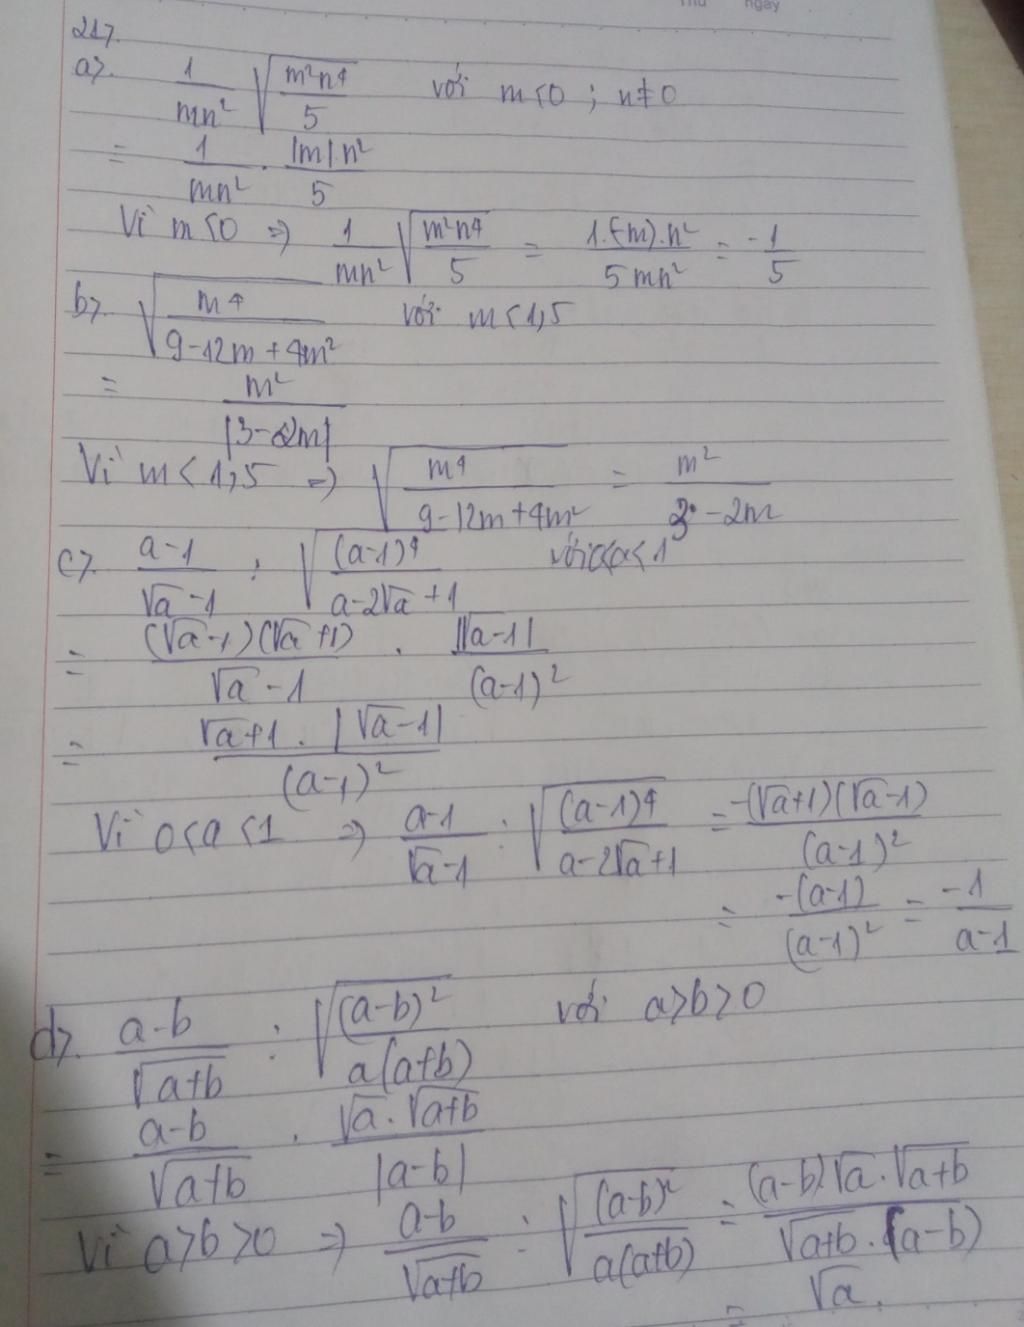 Thứ ngày
217.
a>. \frac{1}{mn²} \sqrt{\frac{m²n⁴}{5}} với m<0 ; n≠0
= \frac{1}{mn²} . \frac{|m|.n²}{5}
Vì m<0 => \frac{1}{mn²} \sqrt{\frac{m²n⁴}{5}} = \frac{1.(-m).n²}{5mn²} = \frac{-1}{5}
b>. \sqrt{\frac{m⁴}{9-12m+4m²}} với m<1,5
= \frac{m²}{|3-2m|}
Vì m<1,5 => \sqrt{\frac{m⁴}{9-12m+4m²}} = \frac{m²}{3-2m}
c>. \frac{a-1}{\sqrt{a}-1} : \sqrt{\frac{(a-1)⁴}{a-2\sqrt{a}+1}} với 0<a<1
= \frac{(\sqrt{a}-1)(\sqrt{a}+1)}{\sqrt{a}-1} . \frac{|\sqrt{a}-1|}{(a-1)²}
= \frac{\sqrt{a}+1 . |\sqrt{a}-1|}{(a-1)²}
Vì 0<a<1 => \frac{a-1}{\sqrt{a}-1} : \sqrt{\frac{(a-1)⁴}{a-2\sqrt{a}+1}} = \frac{-(\sqrt{a}+1)(\sqrt{a}-1)}{(a-1)²}
= \frac{-(a-1)}{(a-1)²} = \frac{-1}{a-1}
d>. \frac{a-b}{\sqrt{a+b}} : \sqrt{\frac{(a-b)²}{a(a+b)}} với a>b>0
= \frac{a-b}{\sqrt{a+b}} . \frac{\sqrt{a}.\sqrt{a+b}}{|a-b|}
Vì a>b>0 => \frac{a-b}{\sqrt{a+b}} : \sqrt{\frac{(a-b)²}{a(a+b)}} = \frac{(a-b).\sqrt{a}.\sqrt{a+b}}{\sqrt{a+b}.(a-b)}
= \sqrt{a}.